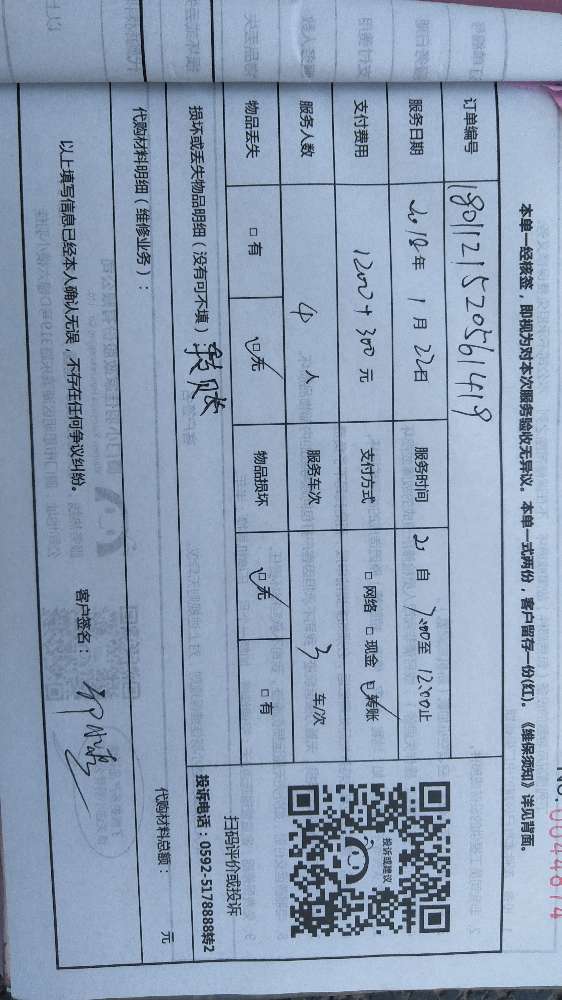 No.0044874
本单一经核签，即视为对本次服务验收无异议。本单一式两份，客户留存一份(红)。《维保须知》详见背面。
订单编号 180112152056141419
服务日期 2018年 1月 22日 服务时间 自 7:00至 12:00止
支付费用 1200+300元 支付方式 □网络 □现金 ☑转账
服务人数 4 人 服务车次 3 车/次
物品丢失 □有 ☑无 物品损坏 ☑无 □有
损坏或丢失物品明细（没有可不填）：
转账
扫码评价或投诉
投诉电话：0592-5178888转2
投诉或建议
代购材料明细（维修业务）：
代购材料总额： 元
以上填写信息已经本人确认无误，不存在任何争议纠纷。 客户签名：